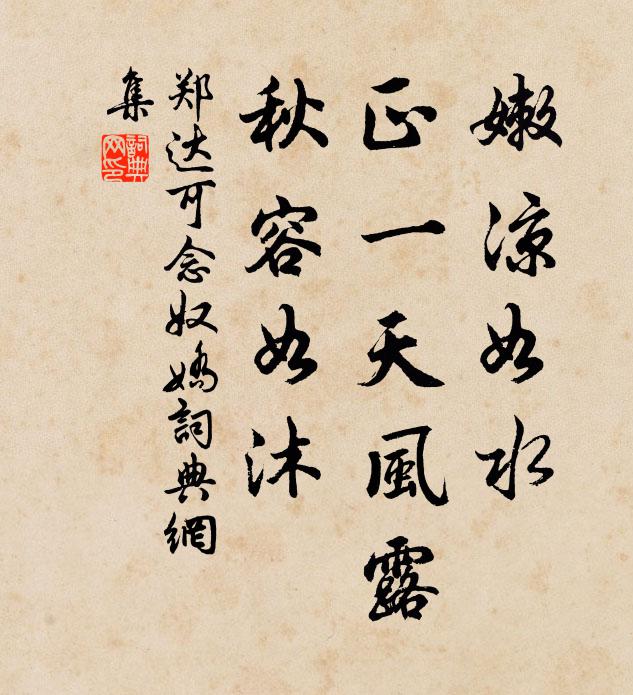 嫩涼如水
正一天風露
秋容如沐
郑达可念奴嬌詞典網
集
詞典
网印